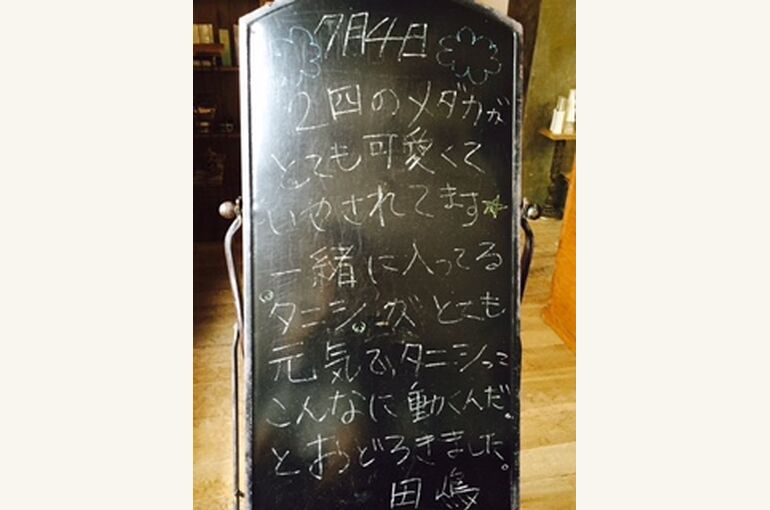 7月4日
2匹のメダカが
とても可愛くて
いやされてます☆
一緒に入ってる
"タニシ"ズとても
元気で、タニシって
こんなに動くんだ。
とおどろきました。
田嶋